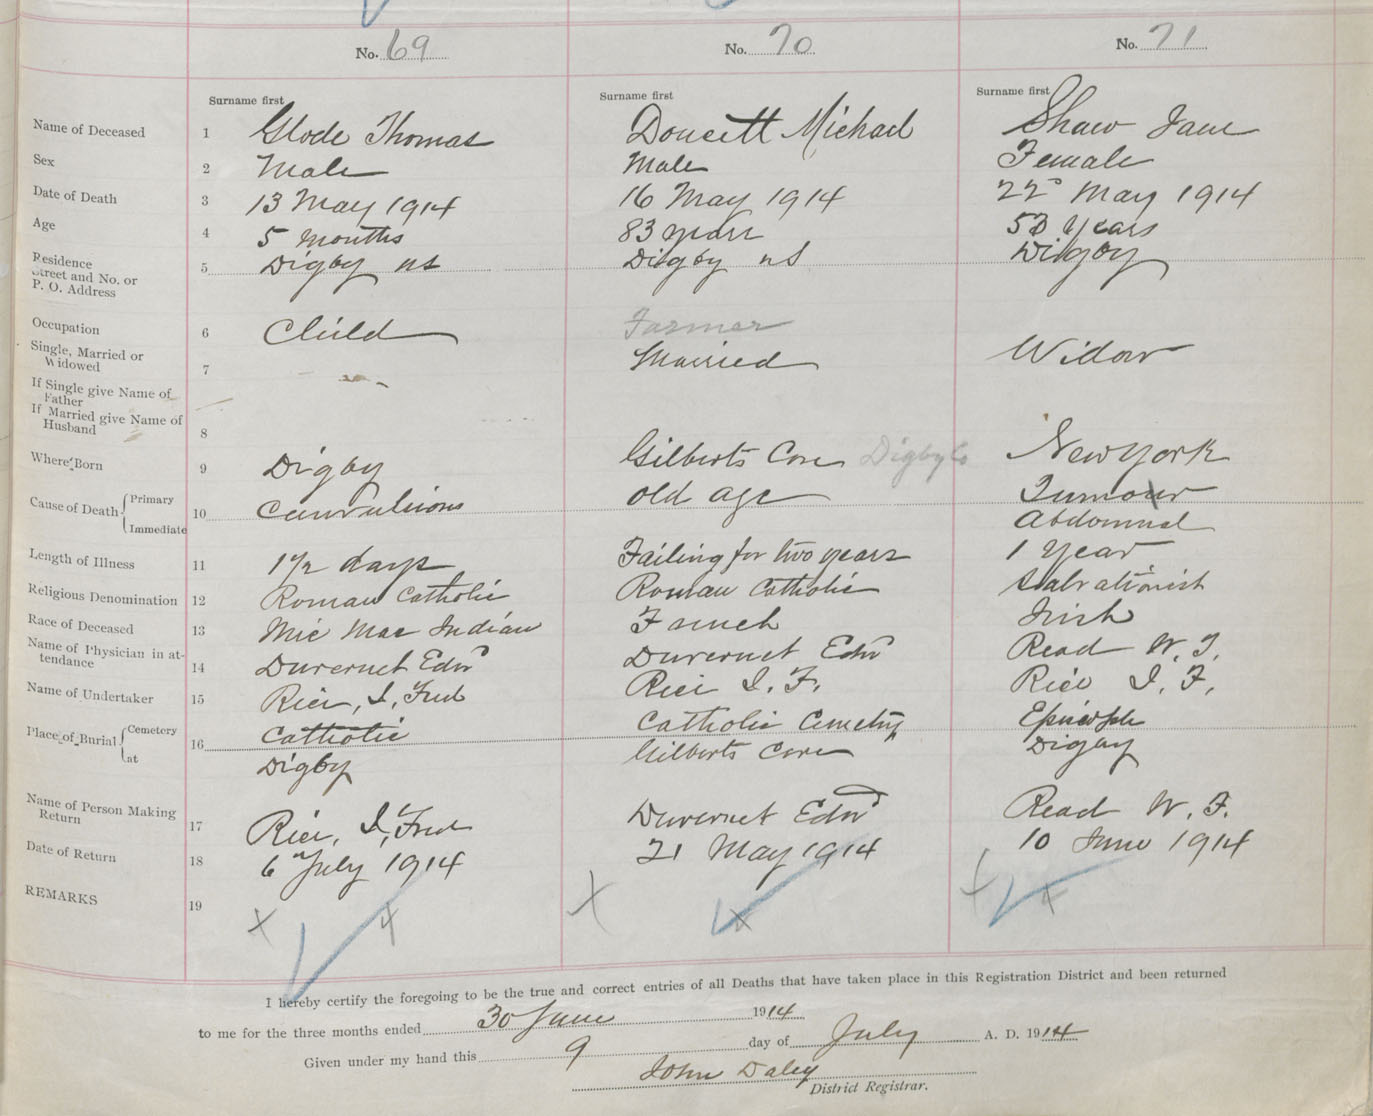 No. 69 No. 70 No. 71
Surname first Surname first Surname first
Name of Deceased 1 Glode Thomas Doucett Michael Shaw Jane
Sex 2 Male Male Female
Date of Death 3 13 May 1914 16 May 1914 22 May 1914
Age 4 5 months 83 years 58 years
Residence
Street and No. or 5 Digby ns Digby ns Digby
P. O. Address
Occupation 6 Child Farmer
Single, Married or
Widowed 7 Married Widow
If Single give Name of
Father
If Married give Name of
Husband 8
Where Born 9 Digby Gilberts Cove Digby Co New York
Cause of Death { Primary Convulsions old age Tumour
Immediate 10 Abdominal
Length of Illness 11 1 1/2 days Failing for two years 1 Year
Religious Denomination 12 Roman Catholic Roman Catholic Salvationist
Race of Deceased 13 Mic Mac Indian French Irish
Name of Physician in at-
tendance 14 Duvernet Edwd Duvernet Edwd Read W. F.
Name of Undertaker 15 Rice, I, Fred Rice I. F. Rice I. F.
Place of Burial { Cemetery 16 Catholic Catholic Cemetry
at Digby Gilberts Cove Digby
Name of Person Making
Return 17 Rice, I, Fred Duvernet Edwd Read W. F.
Date of Return 18 6 July 1914 21 May 1914 10 June 1914
REMARKS 19
x x x x x x
I hereby certify the foregoing to be the true and correct entries of all Deaths that have taken place in this Registration District and been returned
to me for the three months ended 30 June 1914
Given under my hand this 9 day of July A. D. 1914
John Daley
District Registrar.